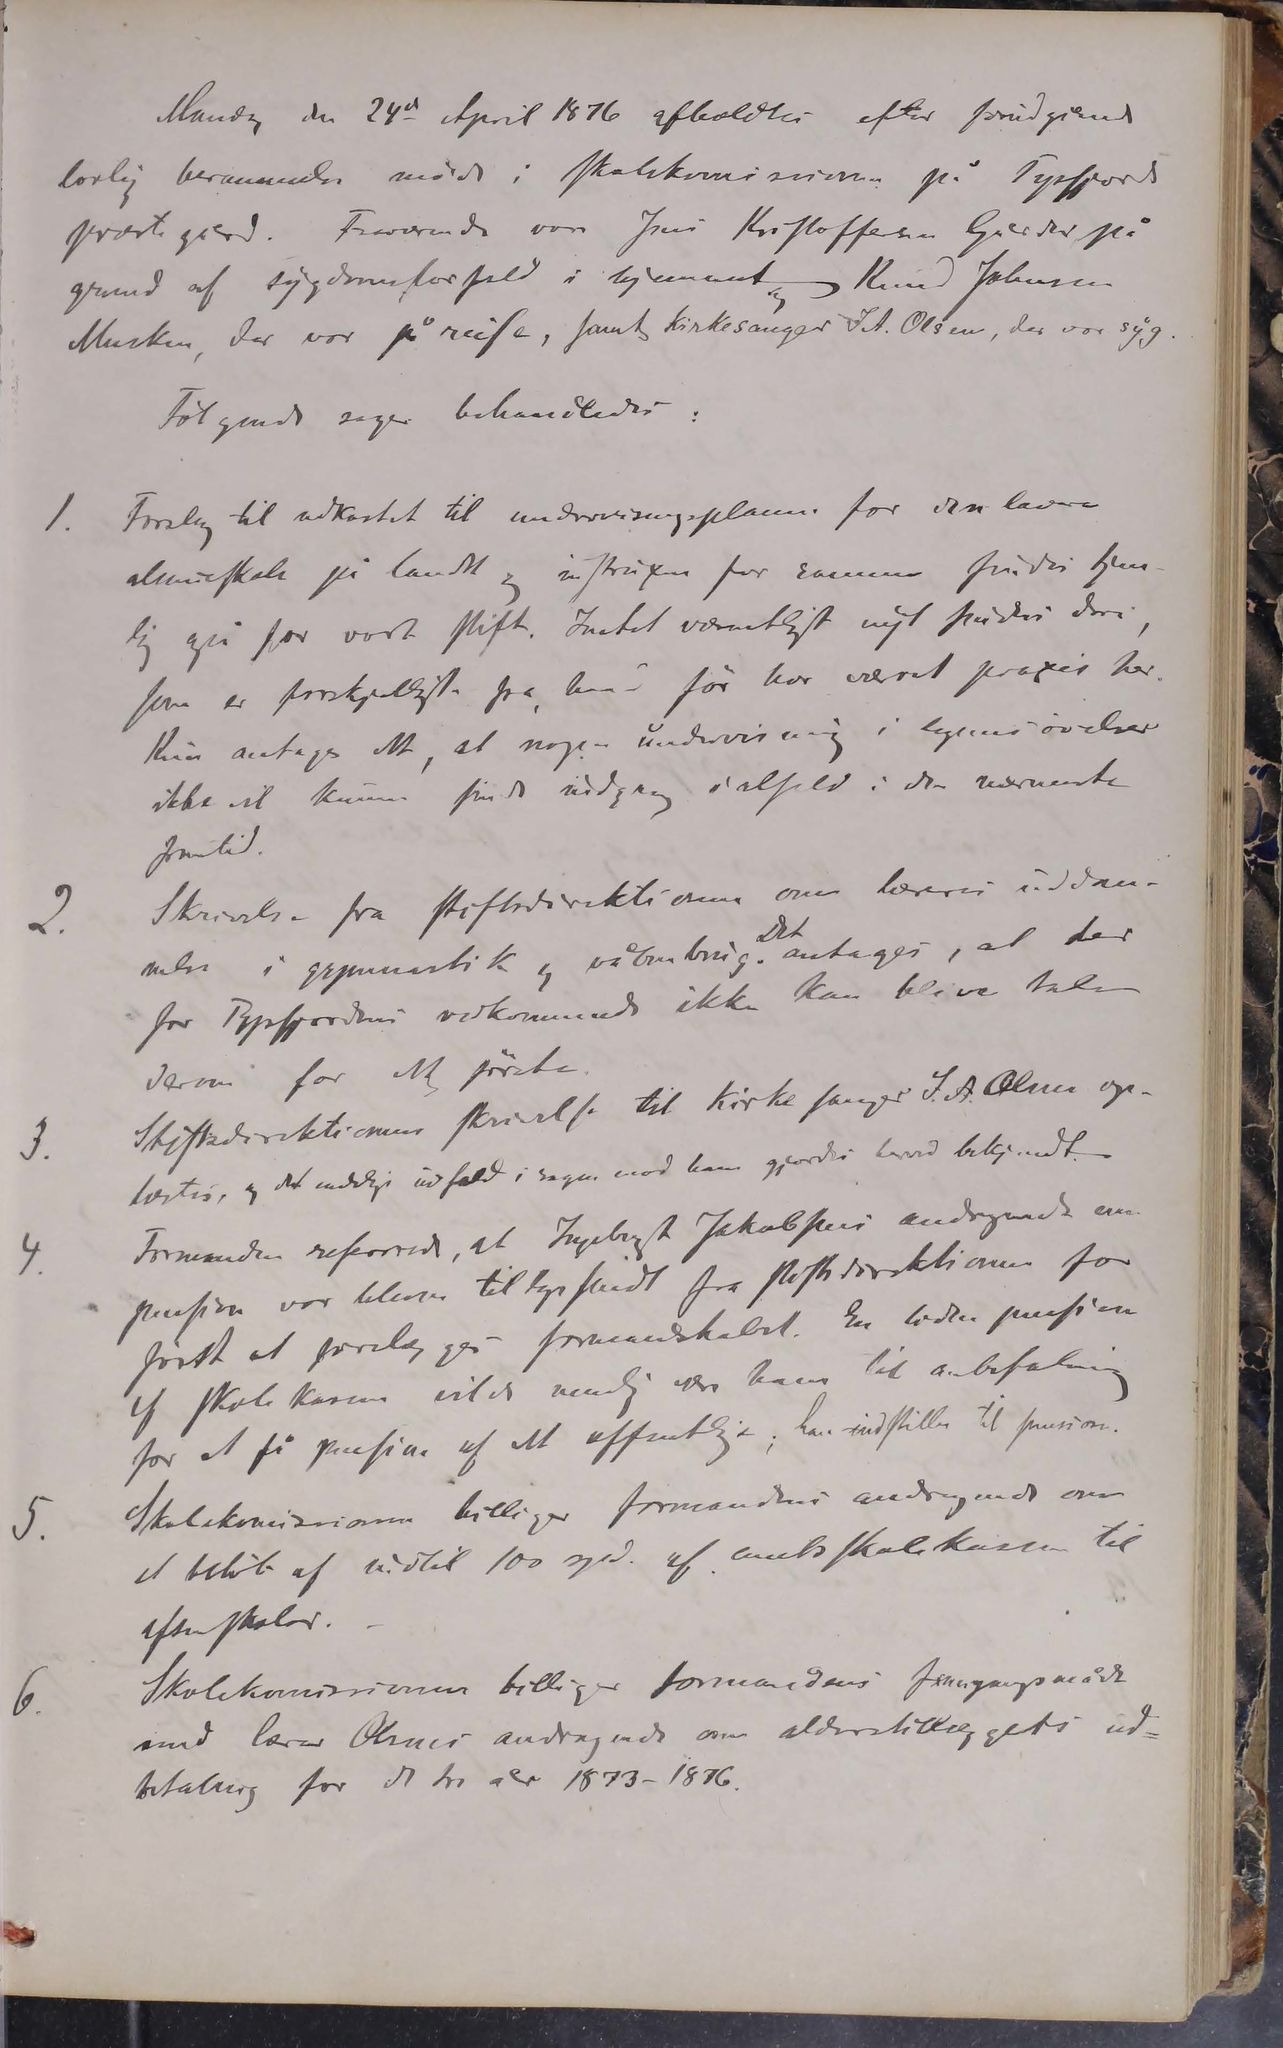 Mandag den 24de April 1876 afholdtes efter forudgående
lovlig berammelse möde i skolekomissionen på Tysfjords
prestegård. Fraværende var Jens Kristoffersen Gjerder på
grund af sygdomsforfald i hjemmet og Knud Johnsen
Musken, der var på reise, samt kirkesanger J.A. Olsen, der var syg.
Fölgende sager behandledes:
1. Forslag til udkastet til undervisningsplanen for den lavere
almueskole på landet og instruxen for samme findes tjen-
lig også for vort stift. Intet væsentligt nyt findes deri,
som er forskjelligt fra, hvad för har været praxis her.
Kun antages det, at nogen undervisning i legemsövelser
ikke vil kunne finde indgang ialfald i den nærmeste
fremtid.
2. Skrivelse fra stiftsdirektionen om læreres uddan-
nelse i gymnastik og våbenbrug. Det antages, at der
for Tysfjordens vedkommende ikke kan blive tale
derom for det förste.
3. Stiftsdirektionens skrivelse til kirkesanger J.A. Olsen op-
læstes, og det endelige udfald i sagen mod ham gjordes herved bekjendt.
4. Formanden refererede, at Ingebrigt Jakobsens andragende om
pension var bleven tilbagesendt fra stiftsdirektionen for
först at forelægges formandskabet. En liden pension
af skolekassen vilde nemlig være ham til anbefaling
for at få pension af det offentlige; han indstilles til pension.
5. Skolekomissionen billiger formandens andragende om
et belöb af indtil 100 spd. af amtsskolekassen til
aftenskoler. -
6. Skolekomissionen billiger formandens fremgangsmåde
med lærer Olsens andragende om alderstillæggets ud=
betaling for de tre år 1873-1876.